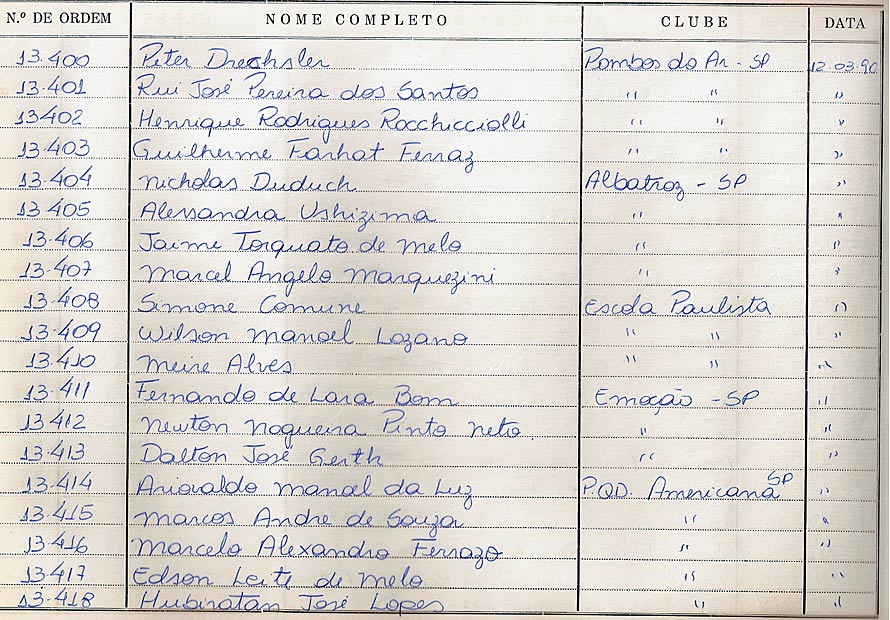 N.º DE ORDEM NOME COMPLETO CLUBE DATA
13.400 Peter Drechsler Pombos do Ar - SP 12.03.90
13.401 Rui José Pereira dos Santos " " "
13402 Henrique Rodrigues Rocchicciolli " " "
13.403 Guilherme Farhat Ferraz " " "
13.404 Nicholas Duduch Albatroz - SP "
13.405 Alessandra Ushizima " "
13.406 Jaime Torquato de Melo " "
13.407 Marcel Angelo Marquezini " "
13.408 Simone Comune Escola Paulista "
13.409 Wilson Manoel Lozano " " "
13.410 Meire Alves " " "
13.411 Fernando de Lara Bom Emoção - SP "
13.412 Newton Nogueira Pinto Neto. " "
13.413 Dalton José Gerth " "
13.414 Ariovaldo Manoel da Luz P.QD. Americana SP "
13.415 Marcos Andre de Souza " "
13.416 Marcelo Alexandro Ferrazo " "
13.417 Edson Leite de Melo " "
13.418 Hubiratan José Lopes " "